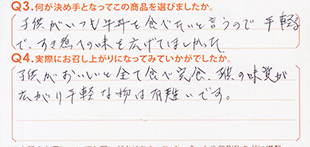 Q3.何が決め手となってこの商品を選びましたか。
子供がいつも牛丼を食べたいと言うので 手軽
で、すき
味を広げてほしかった
Q4.実際にお召し上がりになってみていかがでしたか。
子供がおいしいと全て食べ完食、子供の味覚が
広がり手軽な物は有難いです。